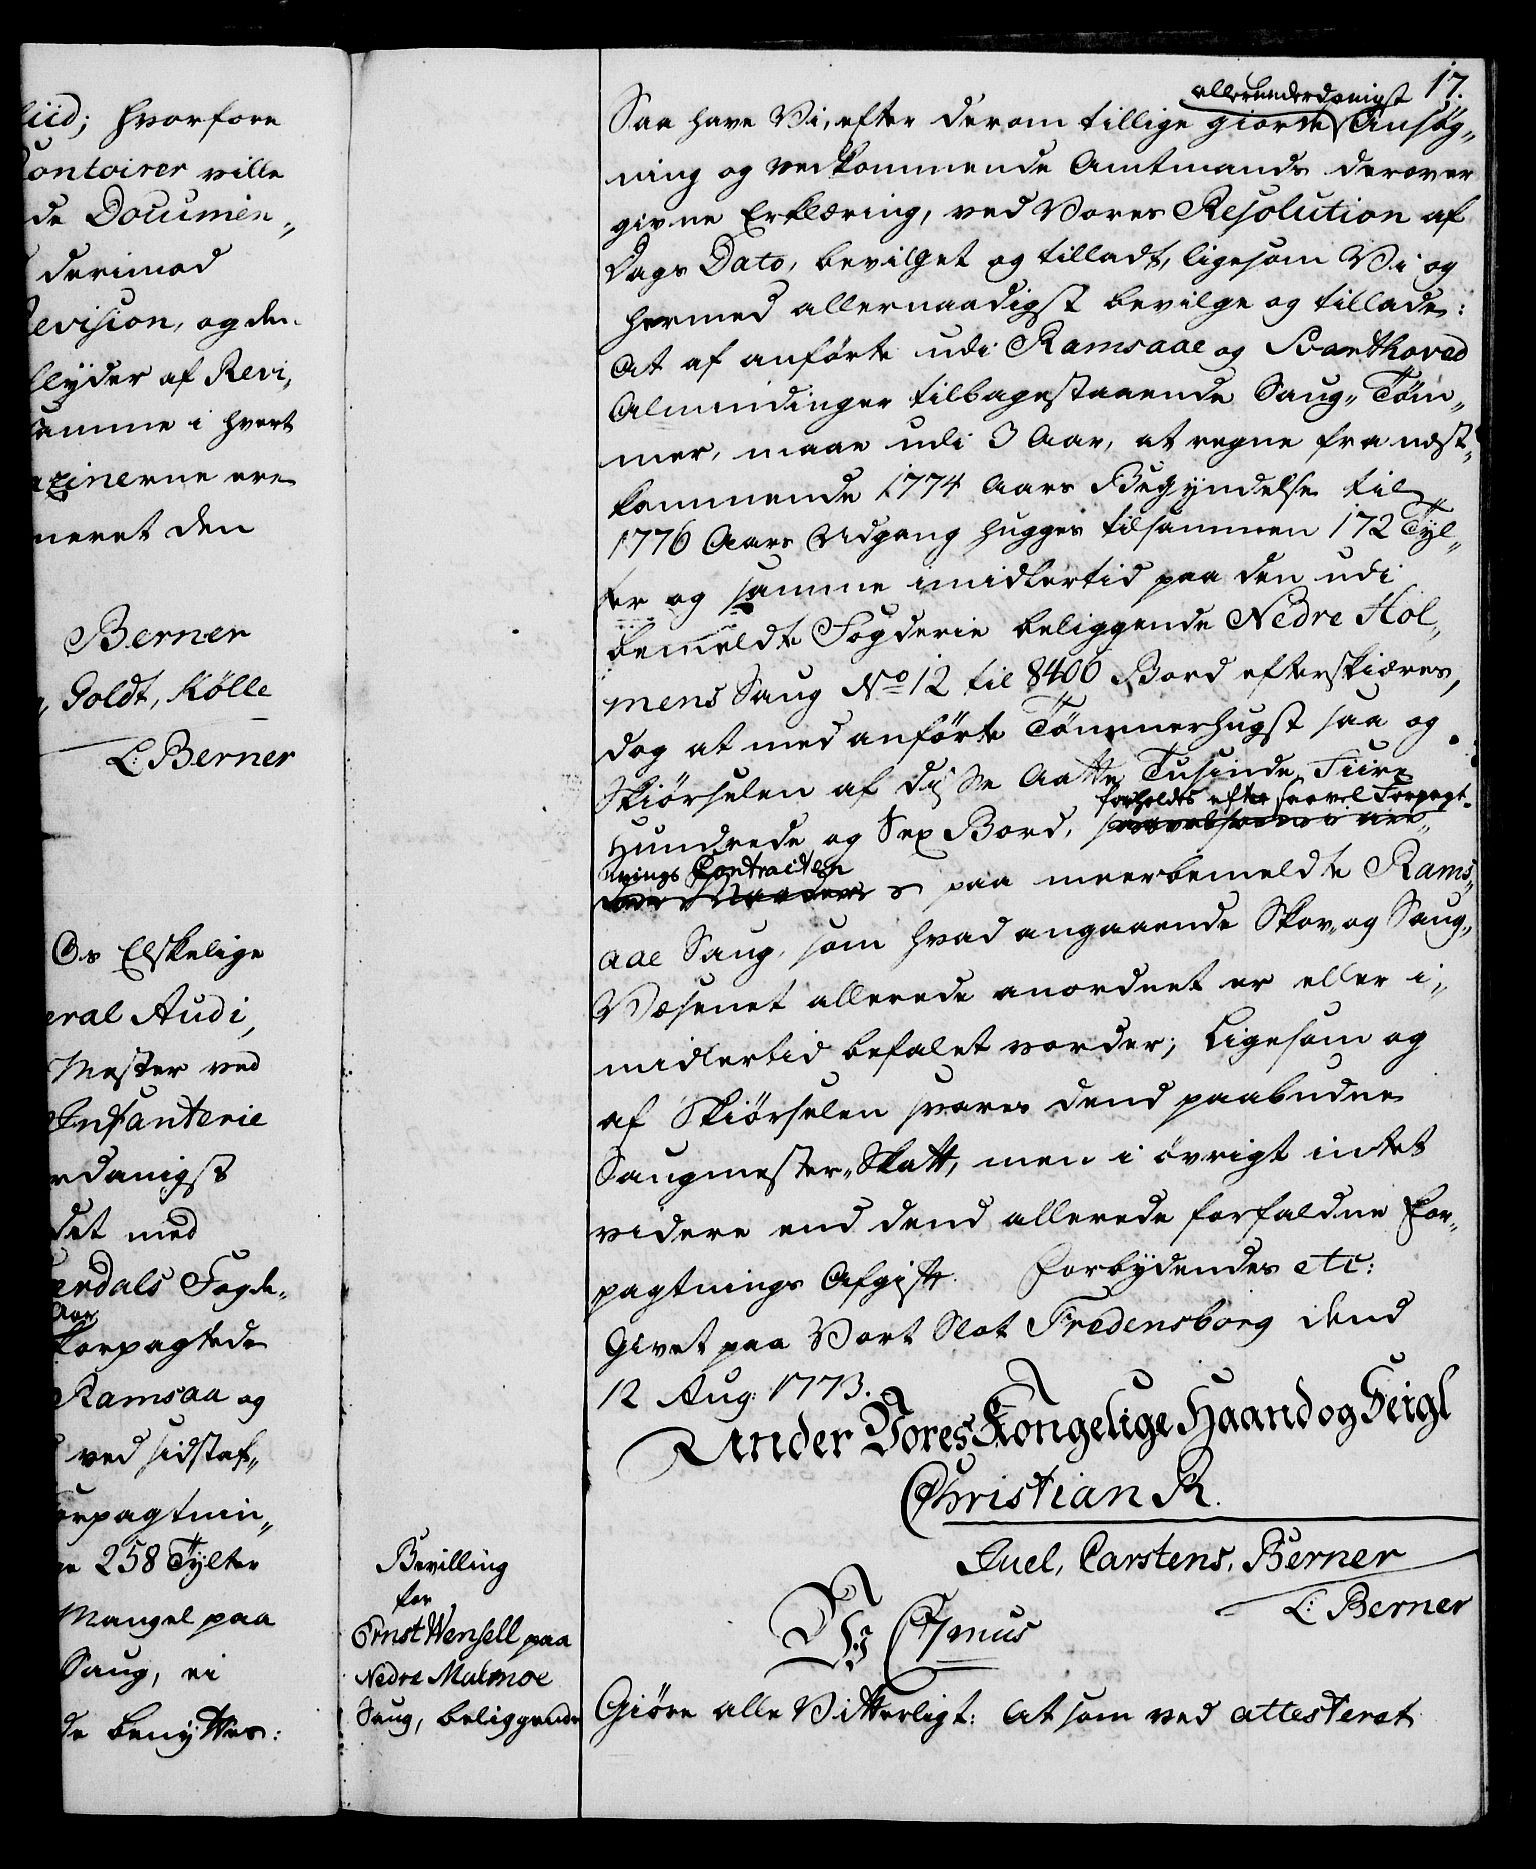 liid; hvorfore
Contoirer ville
de Documen„
derimod
Revision, og den
flyder af Revi,
samme i hvert
azinerne ere
neret den
Berner
Goldt, Kølle
L: Berner
Os Elskelige
eral Audi,
Mester ved
Infanterie
rdanigst
det med
erdals Fogde„
Aar
Forpagtede
Ramsaa og
ved sidstaf„
orpagtnin„
258 Tylter
Mangel paa
Saug, ei
de benyttes:
Bevilling
for
Ernst Wensell paa
Nedre Malmoe
Saug, beliggende
17.
allerunderdanigst
Saa have Vi, efter derom tillige giorde Ansøg„
ning og vedkommende Amtmands derover
givne Erklæring, ved Vores Resolution af
Dags Dato, bevilget og tilladt, ligesom Vi og
hermed allernaadigst bevilge og tillade:
At af anførte udi Ramsaae og Svarthoved
Almindinger tilbagestaaende Saug„ Tøm„
mer, maae udi 3 Aar, at regne fra næst„
kommende 1774 Aars Begyndelse til
1776 Aars Udgang hugges tilsammen 172 Tyl„
ter og samme imidlertid paa den udi
bemeldte Fogderie beliggende Nedre Hol„
mens Saug No 12 til 8406 Bord efterskiæres,
dog at med anførte Tømmerhugst saa og
Skiørselen af disse Aatte Tusinde Fiire
forholdes efter saavel Forpagt„
Hundrede og Sex Bord,
nings Contracten
paa meerbemeldte Rams„
aae Saug, som hvad angaaende Skov„ og Saug„
Væsenet allerede anordnet er eller i„
midlertid befalet vorder; Ligesom og
af Skiørselen svares dend paabudne
Saugmester„ Skatt, men i øvrigt intet
videre end dend allerede forfaldne For„
pagtnings Afgift. Forbydendes etc:
Givet paa Vort Slot Fredensborg dend
12 Aug: 1773.
Under Vores Kongelige Haand og Seigl
Christian R.
Juel, Carstens, Berner
L: Berner
Vi C 7mus
Giøre alle Vitterligt: At som ved attesteret